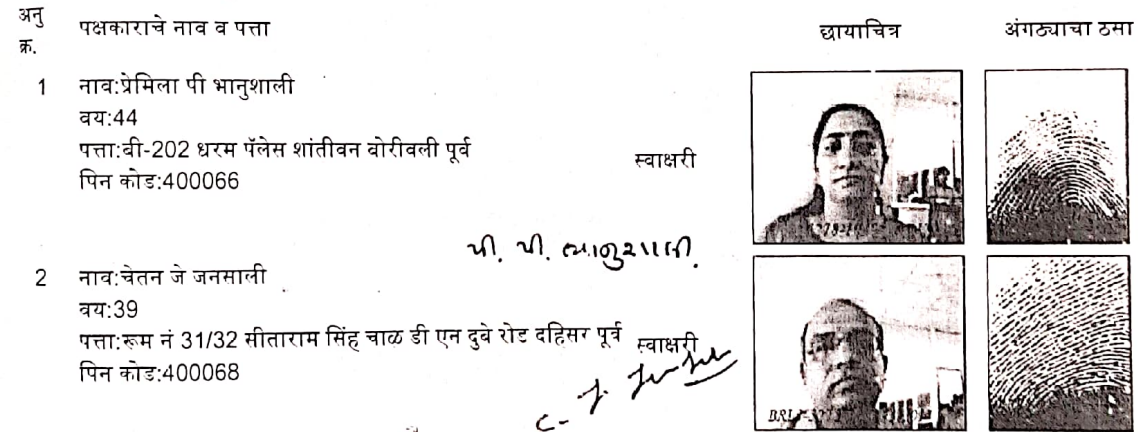 अनु क्र. पक्षकाराचे नाव व पत्ता छायाचित्र अंगठ्याचा ठसा
1 नाव:प्रेमिला पी भानुशाली
वय:44
पत्ता:वी-202 धरम पॅलेस शांतीवन वोरीवली पूर्व स्वाक्षरी
पिन कोड:400066
પી. પી. ભાનુશાલી.
2 नाव:चेतन जे जनसाली
वय:39
पत्ता:रूम नं 31/32 सीताराम सिंह चाळ डी एन दुबे रोड दहिसर पूर्व स्वाक्षरी
पिन कोड:400068
C. J.